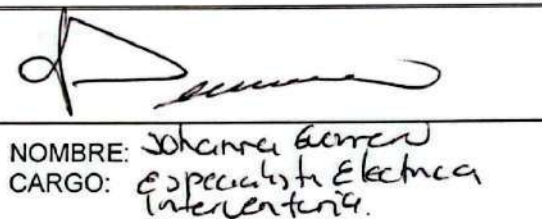 NOMBRE: Johanna Guerrero
CARGO: Especialista Electrica
Interventoria.